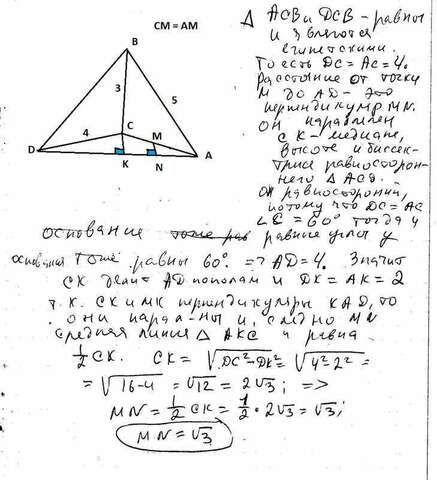 CM = AM
B
3
5
4
C
M
D
K
N
A
Δ ACB и DCB - равны
и являются
египетскими.
То есть DC = AC = 4.
Расстояние от точки
M до AD - это
перпендикуляр MN.
Он параллелен
CK - медиане,
высоте и биссек-
трисе равносторон-
него Δ ACD.
Он равносторонний,
потому что DC = AC
∠C = 60° тогда и
основание равные углы у
основания тоже равны 60°. => AD = 4. Значит
CK делит AD пополам и DK = AK = 2
т.к. CK и MK перпендикуляры к AD, то
они паралны и, следно MN
средняя линия Δ AKC и равна
1/2 CK. CK = √DC²-DK² = √4²-2² =
= √16-4 = √12 = 2√3; =>
MN = 1/2 CK = 1/2 · 2√3 = √3;
MN = √3